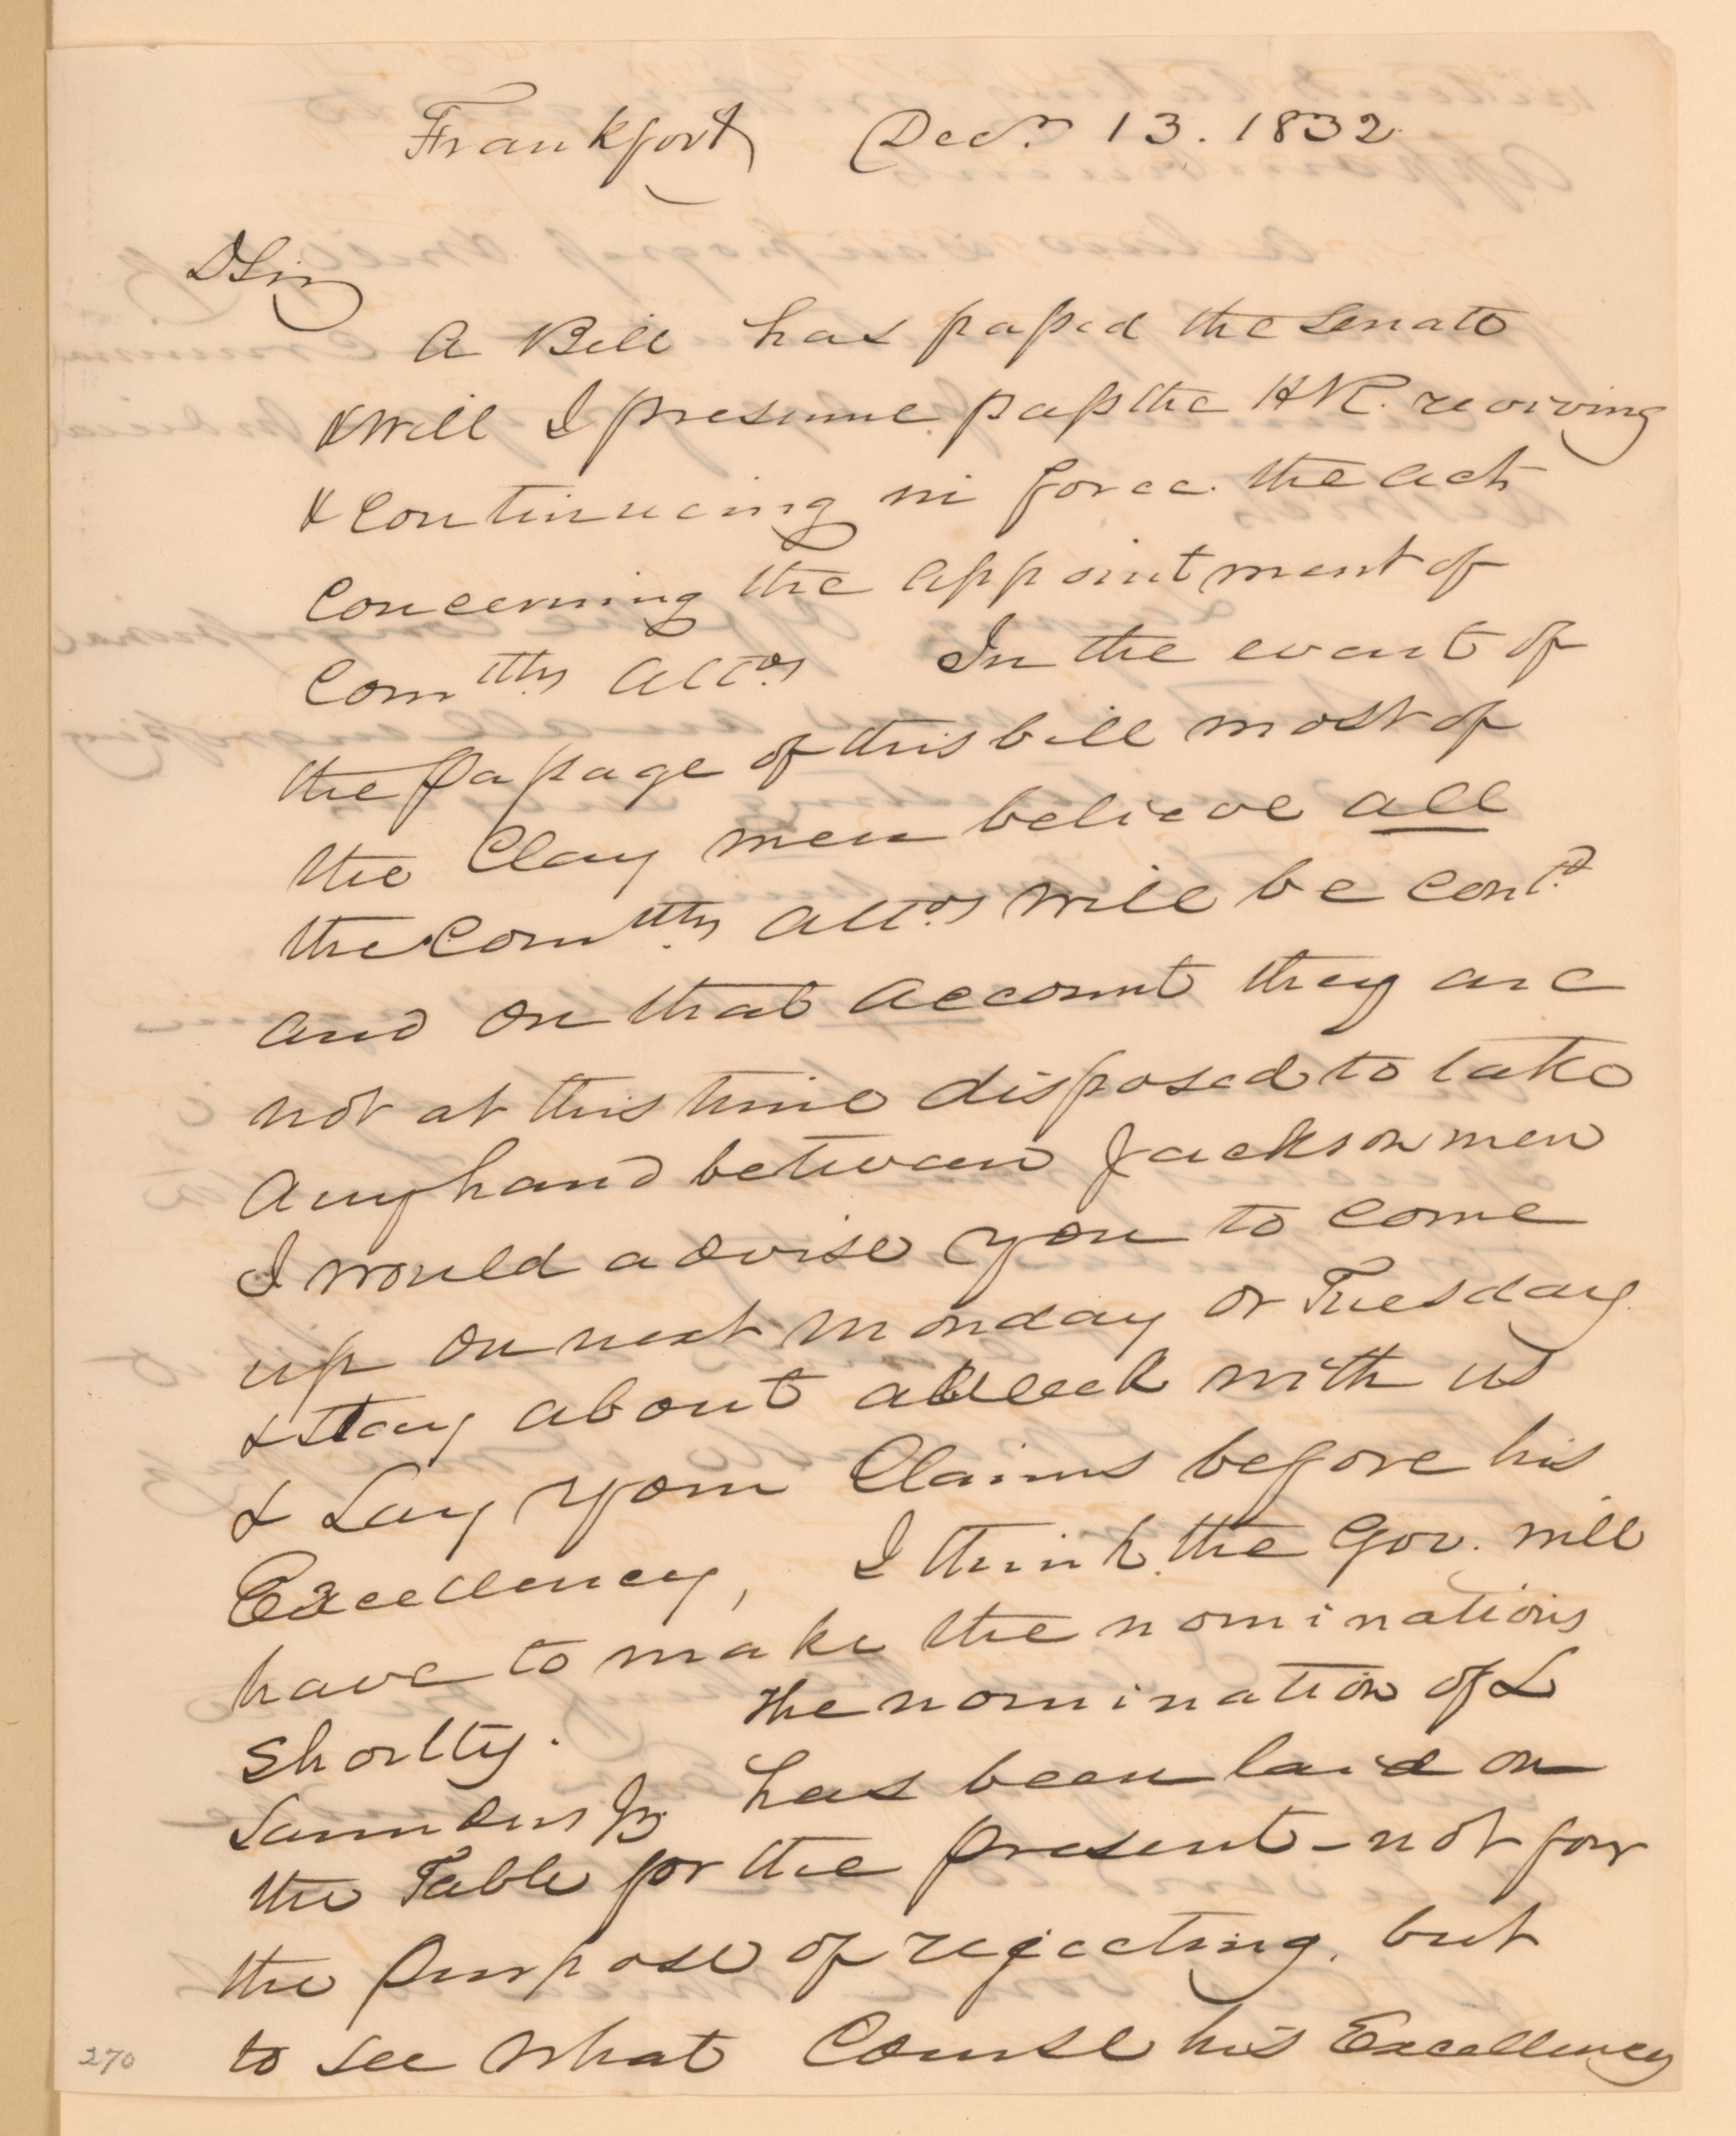 Frankfort Decr. 13. 1832
D Sir
A Bill has passed the Senate
& Will I presume pass the H R. reviving
& Continueing in force. the act
Concerning the appointment of
Comtths attos In the event of
the passage of this bill most of
the Clay men believe all
the Comtths attos will be cont.d
and on that account they are
not at this time disposed to take
any hand between Jackson men
I would advise you to come
up on next Monday or Tuesday
& stay about a Week with us
& Lay your Claims before his
Excellency, I think. the Gov. will
have to make the nominations
Shortly. the nomination of L
Saunders Jr has been laid on
the Table for the present - not for
the purpose of rejecting, but
to see what Course his Excellency
270